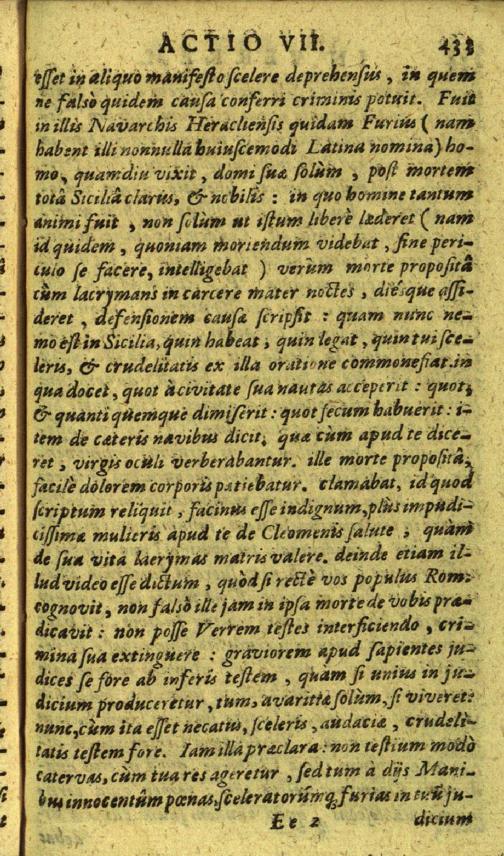 ACTIO VII. 433
eſſet in aliquo manifeſto ſcelere deprehenſus, in quem
ne falsò quidem cauſa conferri criminis potuit. Fuit
in illis Navarchis Heraclienſis quidam Furius ( nam
habent illi nonnulla huiuſcemodi Latina nomina) ho-
mo, quamdiu vixit, domi ſuæ ſolùm, poſt mortem
totâ Siciliâ clarus, & nobilis : in quo homine tantum
animi fuit, non ſolùm ut iſtum liberè læderet ( nam
id quidem, quoniam moriendum videbat, ſine peri-
culo ſe facère, intelligebat ) verùm morte propoſitâ
cùm lacrymans in carcere mater noctes, diéſque aſſi-
deret, defenſionem cauſæ ſcripſit : quam nunc ne-
mo eſt in Sicilia, quin habeat, quin legat, quin tui ſce-
leris, & crudelitatis ex illa oratione commonefiat. in
qua docet, quot à civitate ſua nautas acceperit : quot,
& quanti quemque dimiſerit : quot ſecum habuerit : i-
tem de cæteris navibus dicit, quæ cùm apud te dice-
ret, virgis oculi verberabantur. ille morte propoſitâ,
facilè dolorem corporis patiebatur. clamabat, id quod
ſcriptum reliquit, facinus eſſe indignum, plus impudi-
ciſſimæ mulieris apud te de Cleomenis ſalute, quàm
de ſua vita lacrymas matris valere. deinde etiam il-
lud video eſſe dictum, quòd ſi rectè vos populus Rom.
cognovit, non falsò ille jam in ipſa morte de vobis præ-
dicavit : non poſſe Verrem teſtes interficiendo, cri-
mina ſua extinguere : graviorem apud ſapientes ju-
dices ſe fore ab inferis teſtem, quam ſi unius in ju-
dicium produceretur, tum, avaritiæ ſolùm, ſi viveret:
nunc, cùm ita eſſet necatus, ſceleris, audaciæ, crudeli-
tatis teſtem fore. Iam illa præclara : non teſtium modò
catervas, cùm tua res ageretur, ſed tum à dijs Mani-
bus innocentûm pœnas, ſceleratorúmq; furias in tuũ ju-
E e 2 dicium